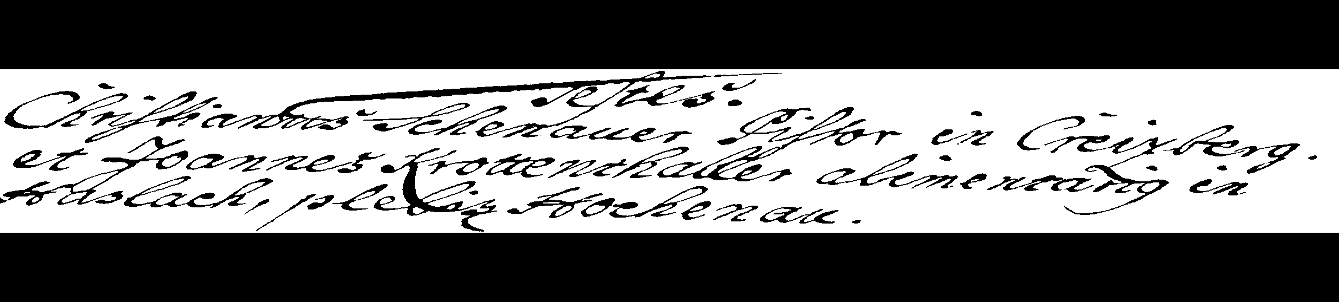 Testes.
Christianus Schenauer, Pistor in Creizberg.
et Joannes Krottenthaller alimentarig in
Haslach, plebis Hochenau.